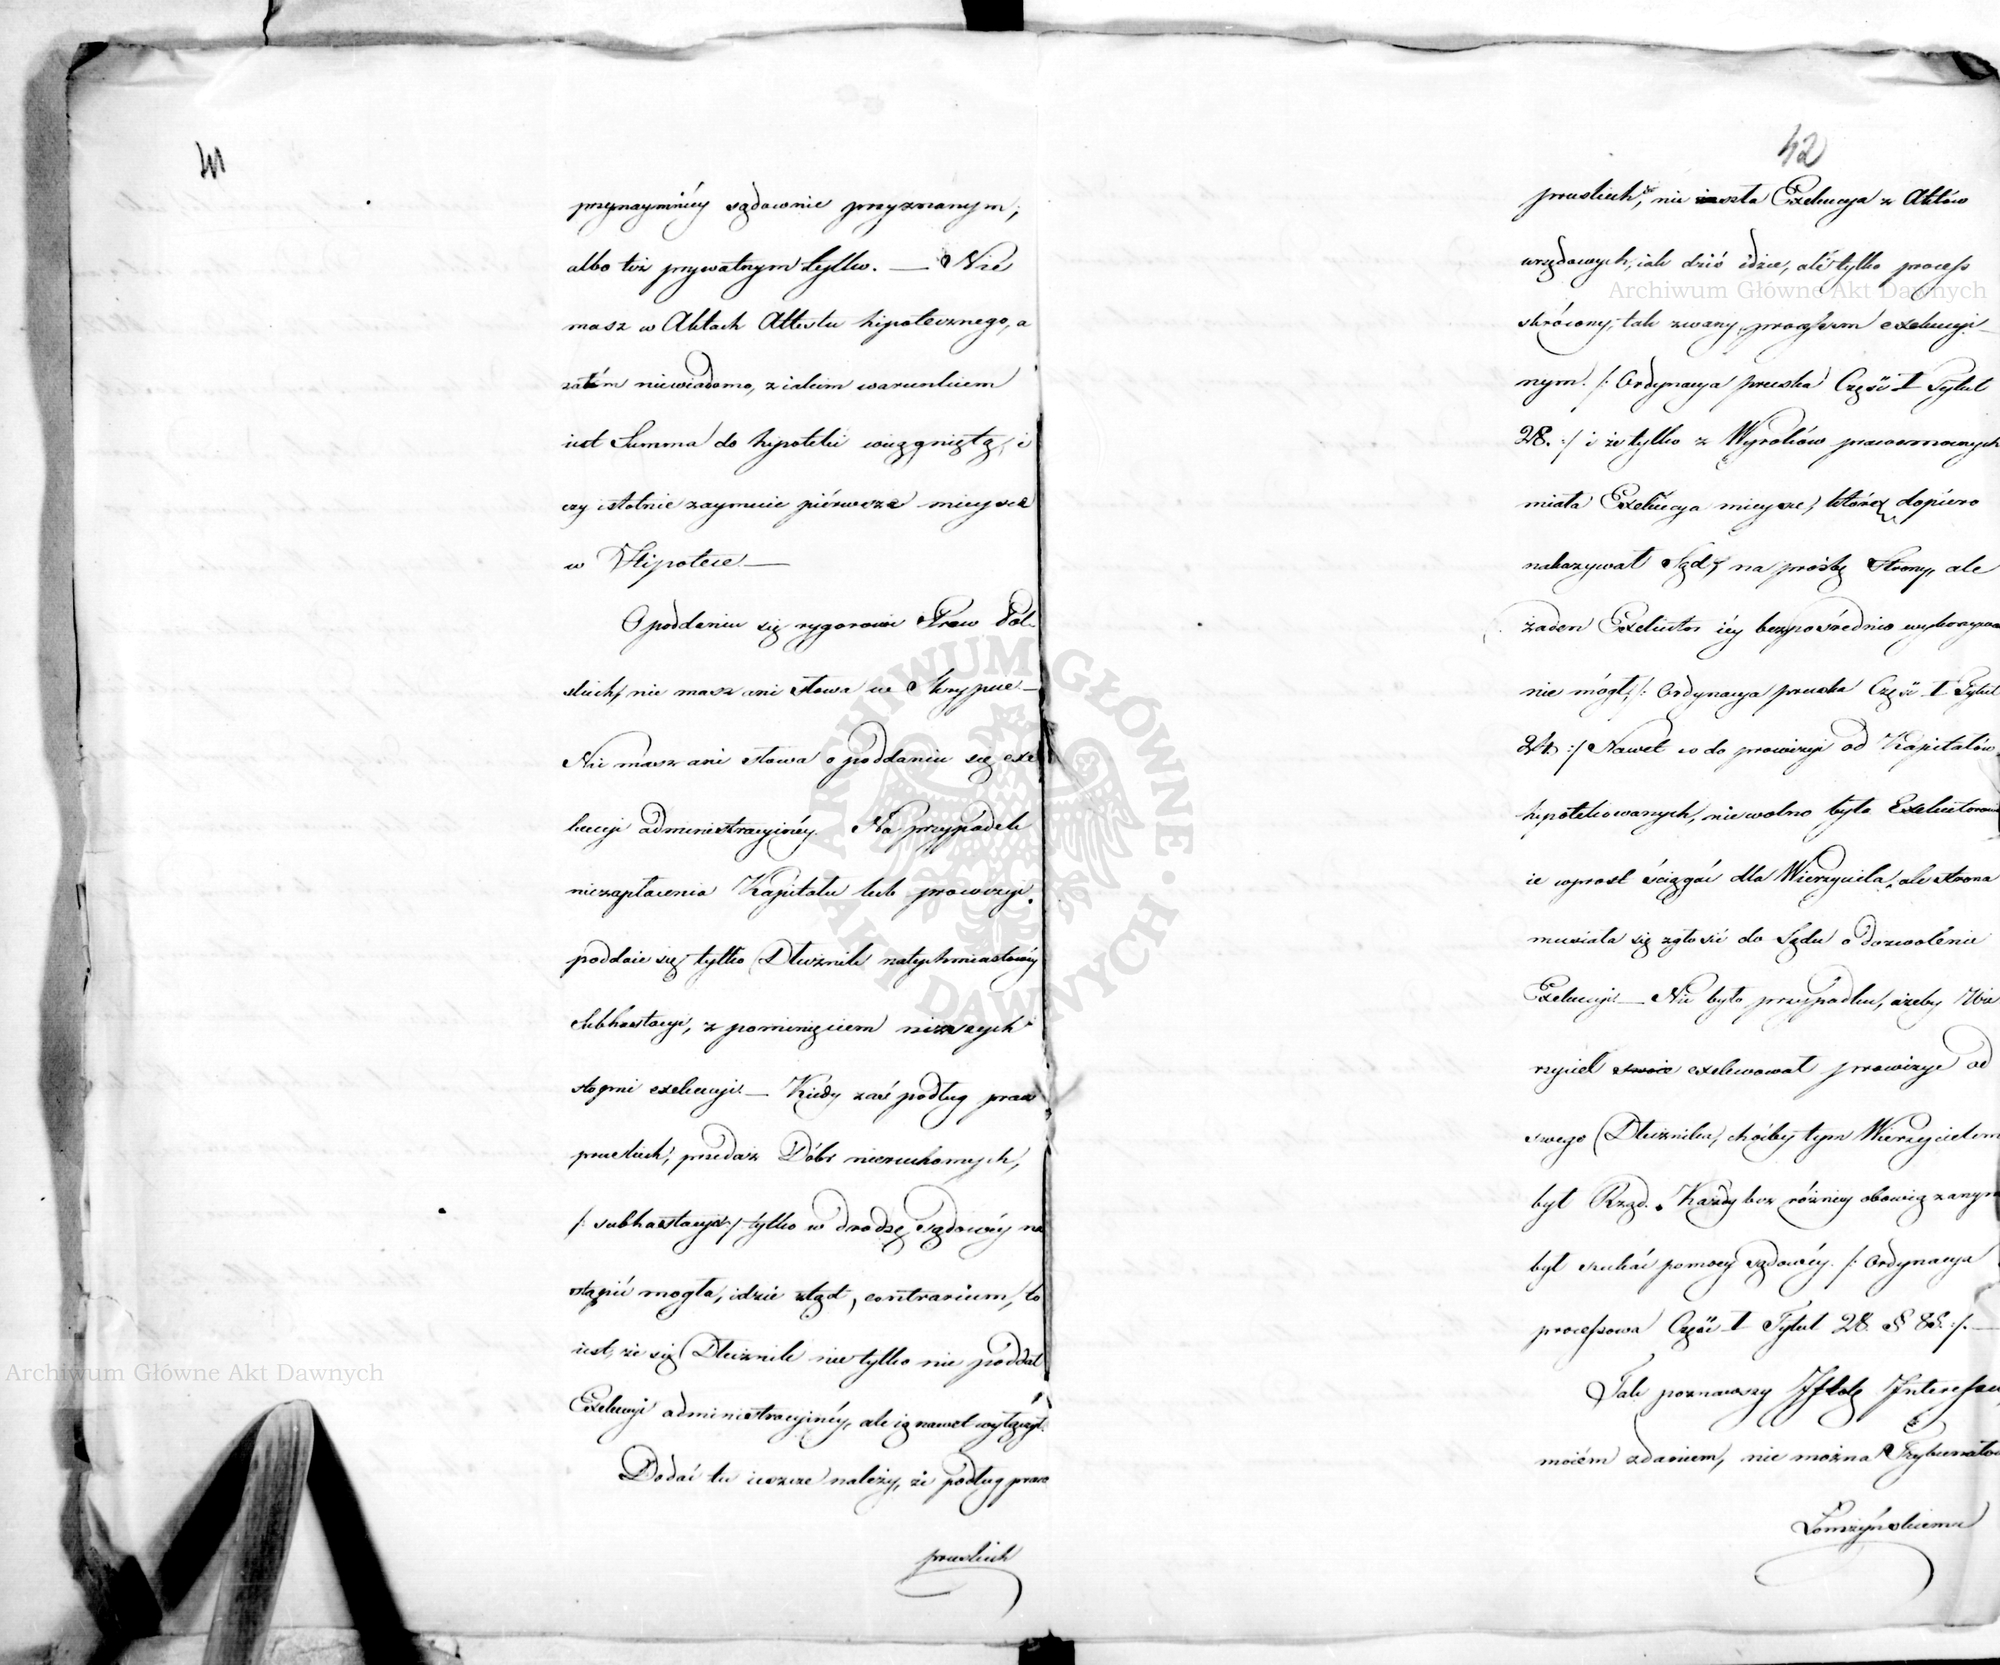 41
przynaymniéy sądownie przyznanym,
albo też prywatnym tylko. — Nie
masz w Aktach Attestu hipotecznego, a
zatém niewiadomo, z iakim warunkiem
iest Summa do hipoteki wciągniętą, i
czy istotnie zaymuie piérwsze mieysce
w Hipotece —
O poddaniu się rygorowi Praw Pol-
skich, nie masz ani słowa w Skrypcie —
Nie masz ani słowa o poddaniu się exe
kucyi administracyinéy. Na przypadek
niezapłacenia Kapitału lub prowizyi
poddaie się tylko Dłużnik natychmiastowéy
Subhastacyi, z pominięciem niższych
stopni exekucyi. — Kiedy zaś podług praw
pruskich, przedaż Dóbr nieruchomych,
/: subhastacya :/ tylko w drodze sądowéy na
stąpić mogła, idzie ztąd, contrarium, to
iest, że się Dłużnik nie tylko nie poddał
Exekucyi administracyinéy, ale ią nawet wyłączył.
Dodać tu ieszcze należy, że podług praw
pruskich
42
pruskich, nie szła Exekucya z Aktów
urzędowych, iak dziś idzie, ale tylko process
skrócony, tak zwany processem exekucyi-
nym. /: Ordynacya pruska Część I Tytuł
28. :/ i że tylko z Wyroków prawomocnych
miała Exekucya mieysce, którą dopiero
nakazywał Sąd, na prośbę Strony, ale
żaden Exekutor iéy bezpośrednio wykonywać
nie mógł, /: Ordynacya pruska Część I Tytuł
24. :/ Nawet co do prowizyi od Kapitałów
hipotekowanych, nie wolno było Exekutorowi
ie wprost ściągać dla Wierzyciela, ale strona
musiała się zgłosić do Sądu o dozwolenie
Exekucyi. — Nie było przypadku, ażeby Wie
rzyciel exekwował prowizye od
swego Dłużnika, choćby tym Wierzycielem
był Rząd. Każdy bez różnicy obowiązanym
był szukać pomocy sądowéy. /: Ordynacya
processowa Część I Tytuł 28. § :/. —
Tak poznawszy Istotę Interessu,
moiém zdaniem, nie można Trybunałowi
Łomżyńskiemu
Archiwum Główne Akt Dawnych
Archiwum Główne Akt Dawnych
ARCHIWUM GŁÓWNE AKT DAWNYCH